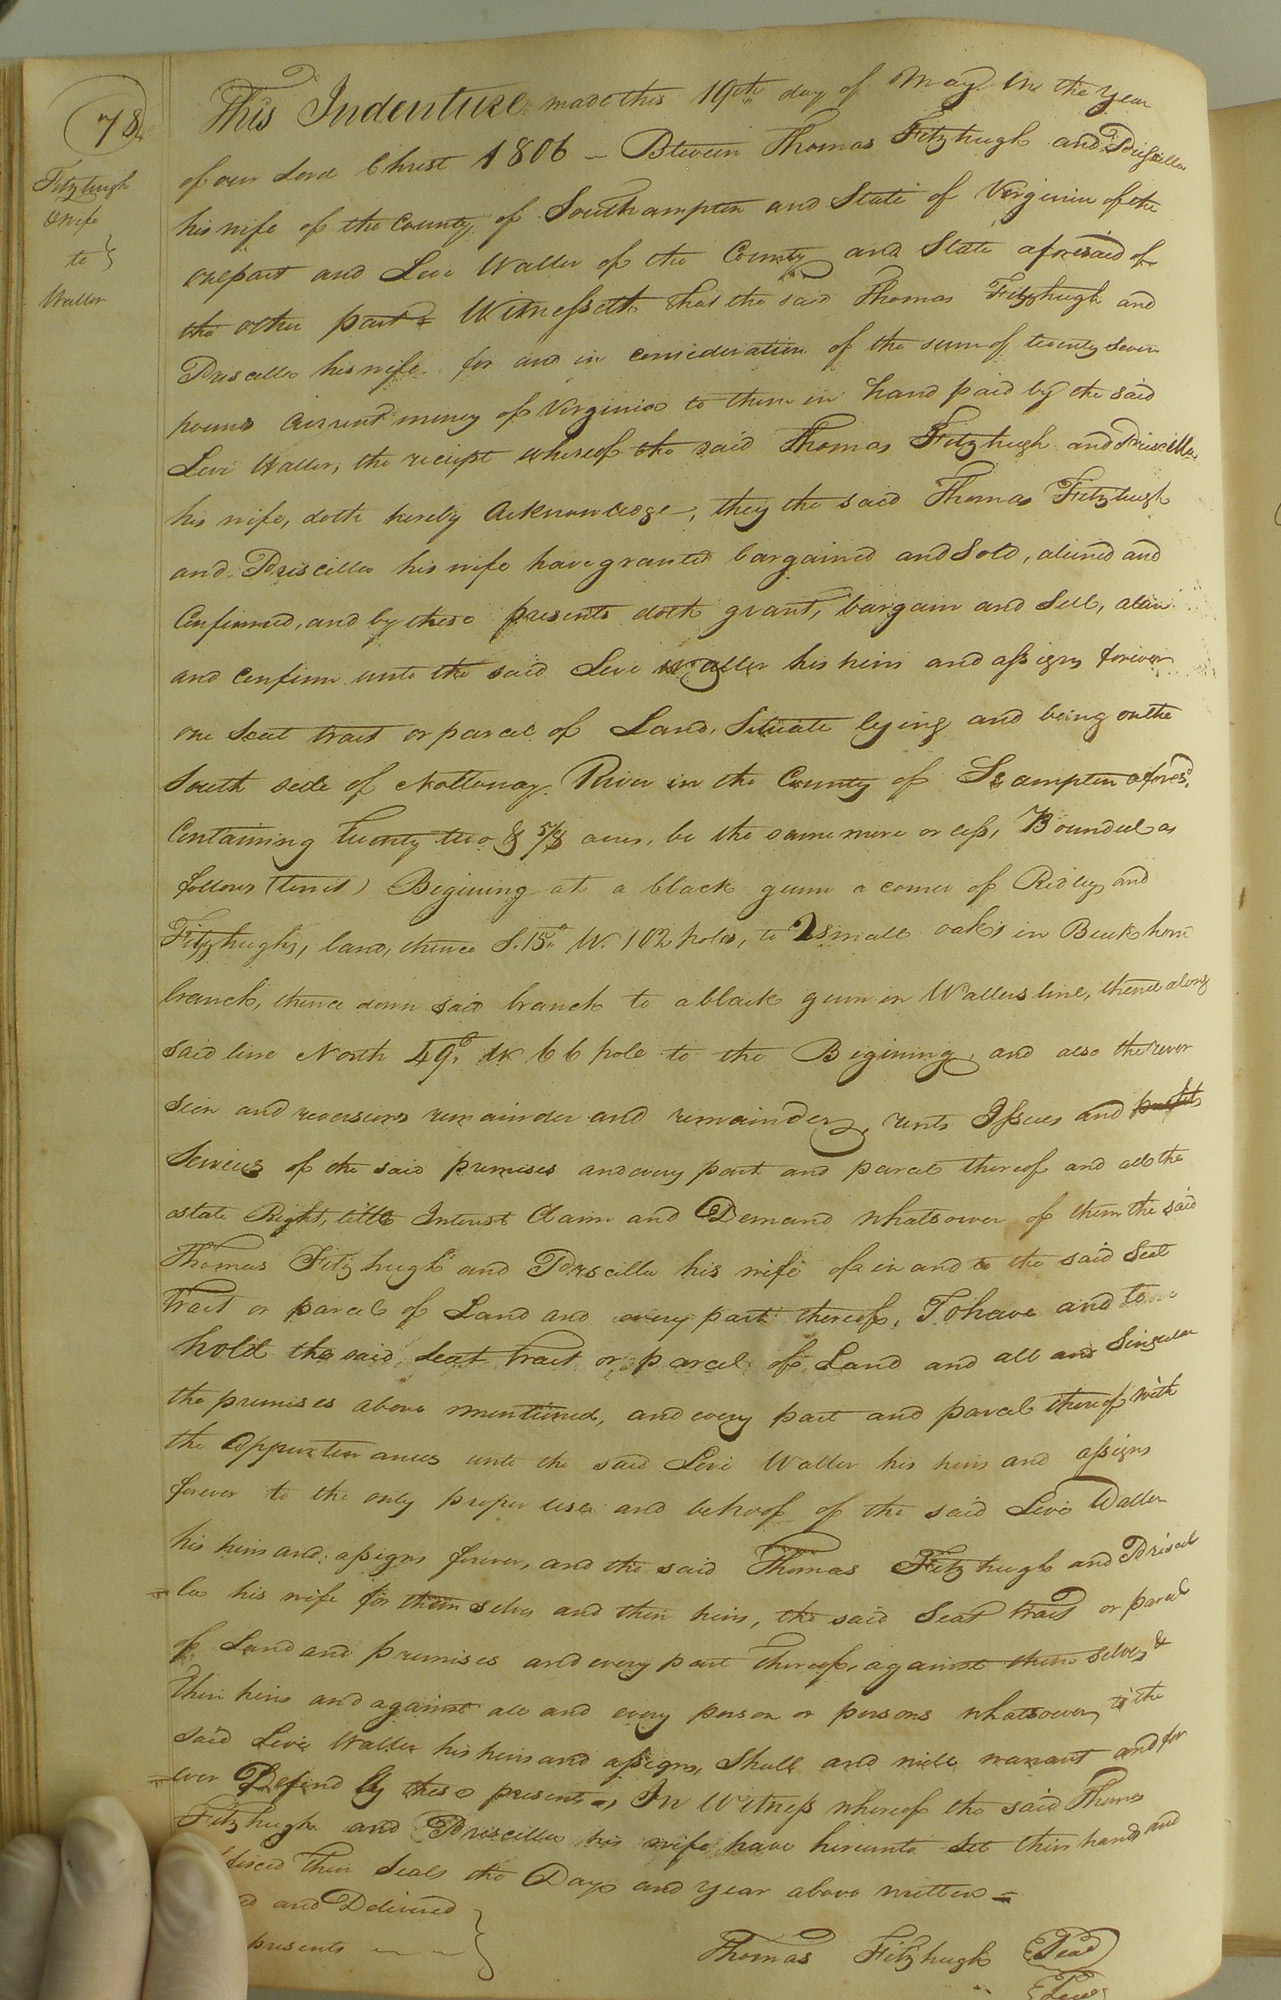 78
Fitzhugh
& wife
to }
Waller
This Indenture made this 19th day of May in the year
of our Lord Christ 1806 – Between Thomas Fitzhugh and Priscilla
his wife of the County of Southampton and State of Virginia of the
onepart and Levi Waller of the County and State aforesaid of
the other part Witnesseth that the said Thomas Fitzhugh and
Priscilla his wife for and in consideration of the sum of twenty seven
pound Current money of Virginia to them in hand paid by the said
Levi Waller, the reciept whereof the said Thomas Fitzhugh and Priscilla
his wife, doth hereby Acknowledge, they the said Thomas Fitzhugh
and Priscilla his wife have granted bargained and Sold, aliened and
Confirmed, and by these presents doth grant, bargain and Sell, alien
and Confirm unto the said Levi Waller his heirs and assigns forever
one Seat tract or parcel of Land, Situate lying and being on the
South side of Nottoway River in the County of So ampton afores.d
Containing twenty two & 5/8 acres, be the same more or less, Bounded as
follows (towit) Begining at a black gum a corner of Ridley and
Fitzhughs, land, thence S. 15° W. 102 poles, to 2 small oaks in Buckhorn
branch, thence down said branch to a black gum in Wallers line, thence along
said line North 49° W 66 pole to the Begining, and also the rever
sion and reversions remainder and remainders, rents Issues and profits
Services of the said premises and every part and parcel thereof and all the
estate Right, title Interest Claim and Demand whatsoever of them the said
Thomas Fitzhugh and Prscilla his wife of in and to the said Seat
tract or parcel of Land and every part thereof, To have and to
hold the said Seat tract or parcel of Land and all and Singular
the premises above mentioned, and every part and parcel thereof with
the Appurtenances unto the said Levi Waller his heirs and assigns
forever to the only proper use and behoof of the said Levi Waller
his heirs and assigns forever, and the said Thomas Fitzhugh and Priscil
la his wife for them selves and their heirs, the said Seat tract or parcel
of Land and premises and every part thereof, against them selves &
their heirs and against all and every person or persons whatsoever, to the
said Levi Waller his heirs and assigns, Shall and will warrant and for
ever Defend by these presents, In Witness whereof the said Thomas
Fitzhugh and Priscilla his wife have hereunto Set their hands and
their Seals the Day and year above written =
and Delivered }
presents
Thomas Fitzhugh Seal
Seal